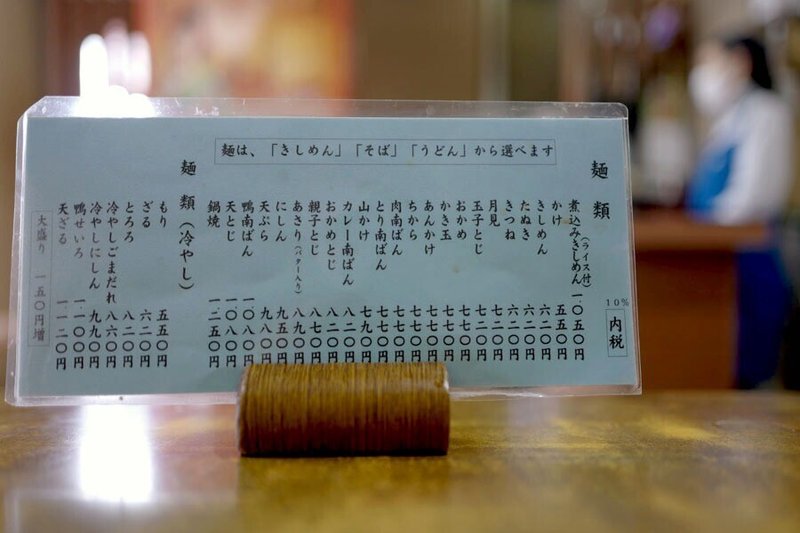 麺は、「きしめん」「そば」「うどん」から選べます
麺類
10%
内税
煮込みきしめん(ライス付) 一〇五〇円
かけ 五五〇円
きしめん 六二〇円
たぬき 六二〇円
きつね 六二〇円
月見 六二〇円
玉子とじ 七二〇円
おかめ 七七〇円
かき玉 七七〇円
あんかけ 七七〇円
ちから 七七〇円
肉南ばん 七七〇円
とり南ばん 七七〇円
山かけ 七九〇円
カレー南ばん 八二〇円
おかめとじ 八二〇円
親子とじ 八七〇円
あさり(バター入り) 八九〇円
にしん 九五〇円
天ぷら 九八〇円
鴨南ばん 一〇〇〇円
天とじ 一〇八〇円
鍋焼 一二五〇円
麺類(冷やし)
もり 五五〇円
ざる 六二〇円
とろろ 八二〇円
冷やしごまだれ 八六〇円
冷やしにしん 九九〇円
鴨せいろ 一一〇〇円
天ざる 一一二〇円
大盛り 一五〇円増